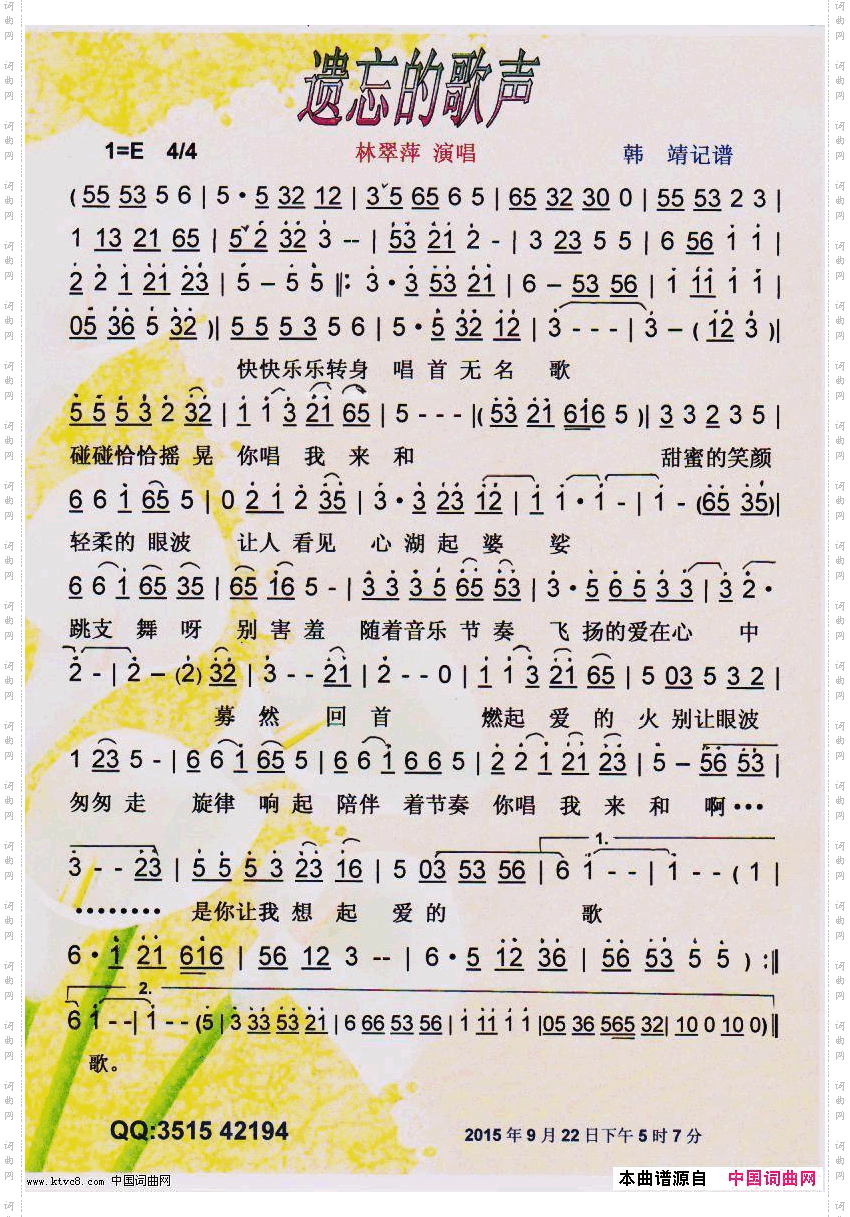 遗忘的歌声
1=E 4/4 林翠萍 演唱 韩 靖记谱
( 55 53 5 6 | 5 · 5 32 12 | 3 5 65 6 5 | 65 32 30 0 | 55 53 2 3 |
1 13 21 65 | 5 2 32 3 -- | 53 21 2 - | 3 23 5 5 | 6 56 1 1 |
2 2 1 21 23 | 5 – 5 5 ‖: 3 · 3 53 21 | 6 – 53 56 | 1 11 1 1 |
05 36 5 32 )| 5 5 5 3 5 6 | 5 · 5 32 12 | 3 - - - | 3 – ( 12 3 )|
快快乐乐转身 唱 首 无 名 歌
5 5 5 3 2 32 | 1 1 3 21 65 | 5 - - - |( 53 21 616 5 )| 3 3 2 3 5 |
碰碰恰恰摇 晃 你唱 我 来 和 甜蜜的笑颜
6 6 1 65 5 | 0 2 1 2 35 | 3 · 3 23 12 | 1 1 · 1 - | 1 - (65 35)|
轻柔的 眼波 让人 看见 心 湖 起 婆 娑
6 6 1 65 35 | 65 16 5 - | 3 3 3 5 65 53 | 3 · 5 6 5 3 3 | 3 2 ·
跳支 舞 呀 别 害 羞 随着音乐 节 奏 飞 扬的爱在心 中
2 - | 2 – (2) 32 | 3 - - 21 | 2 - - 0 | 1 1 3 21 65 | 5 03 5 3 2 |
蓦 然 回 首 燃起 爱 的 火 别让眼波
1 23 5 - | 6 6 1 65 5 | 6 6 1 6 6 5 | 2 2 1 21 23 | 5 – 56 53 |
匆匆 走 旋律 响 起 陪伴 着节奏 你唱 我 来 和 啊···
3 - - 23 | 5 5 5 3 23 16 | 5 03 53 56 | 6 1 - - | 1 - - ( 1 |
1.
········ 是你让我 想 起 爱 的 歌
6 · 1 21 616 | 56 12 3 -- | 6 · 5 12 36 | 56 53 5 5 ) :‖
2.
6 1 - -| 1 - - (5 | 3 33 53 21 | 6 66 53 56 | 1 11 1 1 |05 36 565 32| 10 0 10 0)‖
歌。
QQ:3515 42194 2015 年 9 月 22 日下午 5 时 7 分
www.ktvc8.com 中国词曲网
本曲谱源自 中国词曲网